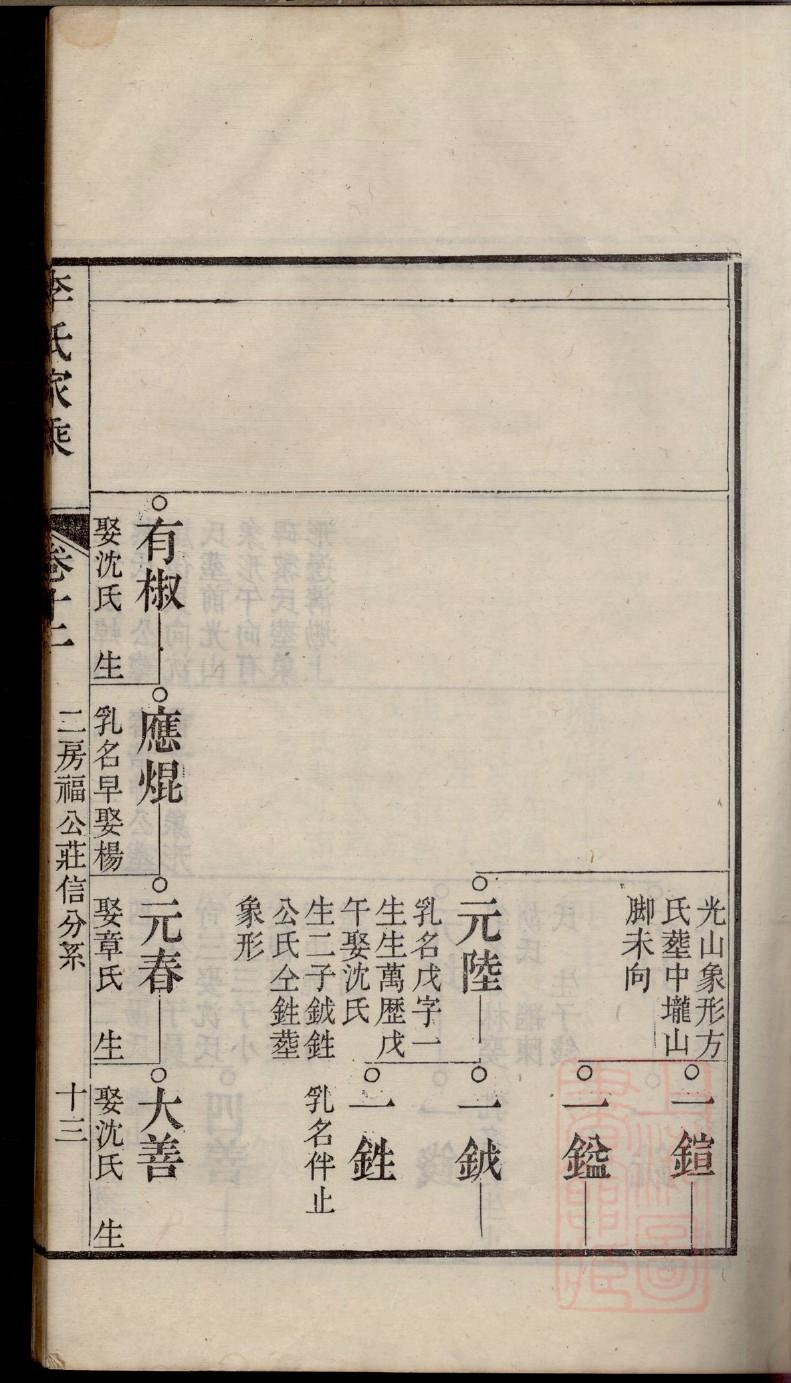 光山象形方
氏塟中壠山
脚未向
一鎧
一鎰
元陸
乳名戊字一
生生萬歷戊
午娶沈氏
生二子鉞鉎
公氏仝鉎塟
象形
一鉞
一鉎
乳名伴止
有椒
娶沈氏　生
應焜
乳名早娶楊
元春
娶章氏　生
大善
娶沈氏　生
李氏家乘
卷十二
二房福公莊信分系
十三